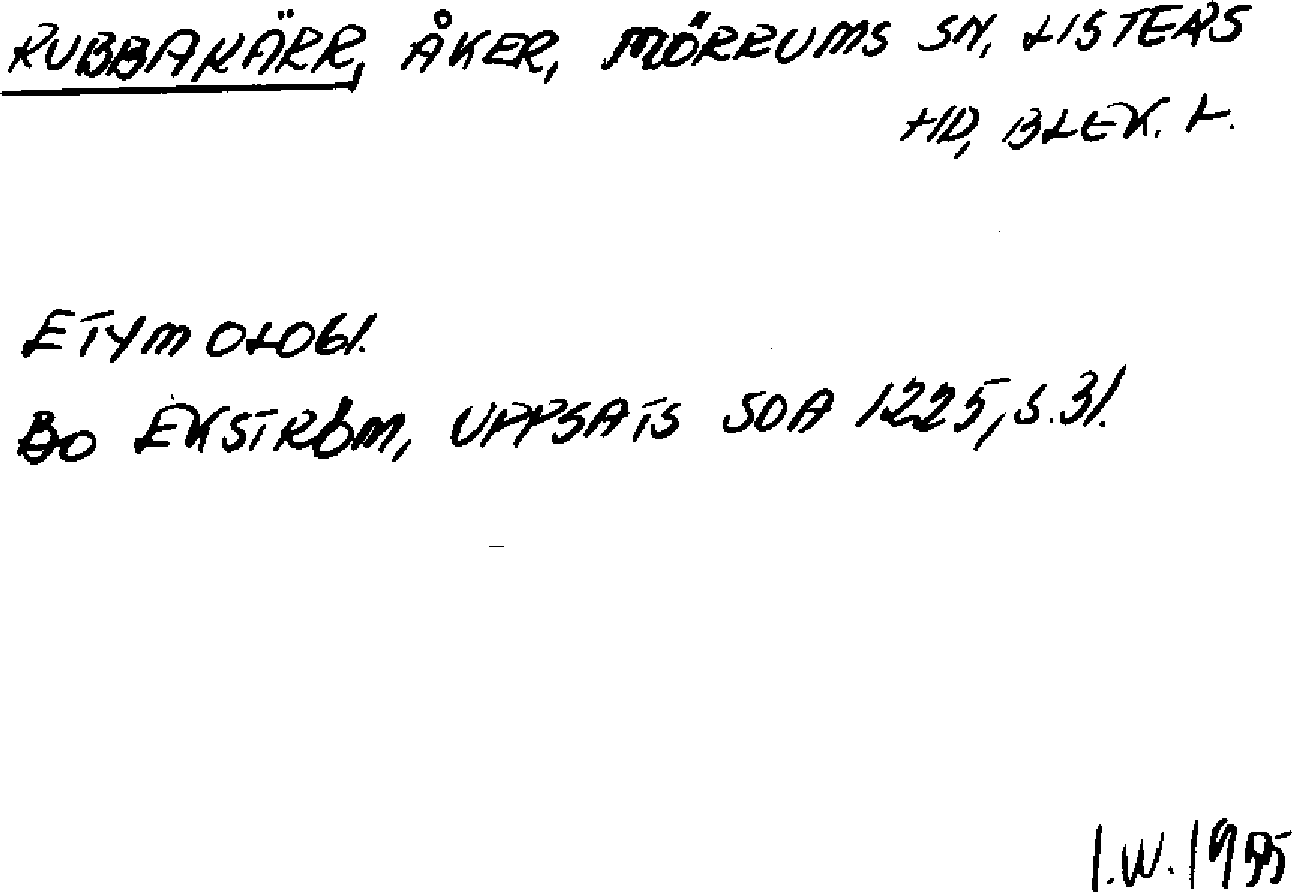 RUBBAKÄRR, ÅKER, MÖRRUMS SN, LISTERS
HD, BLEK. L.
ETYMOLOGI.
BO EKSTRÖM, UPPSATS SOA 1225, S. 31.
I.W. 1995